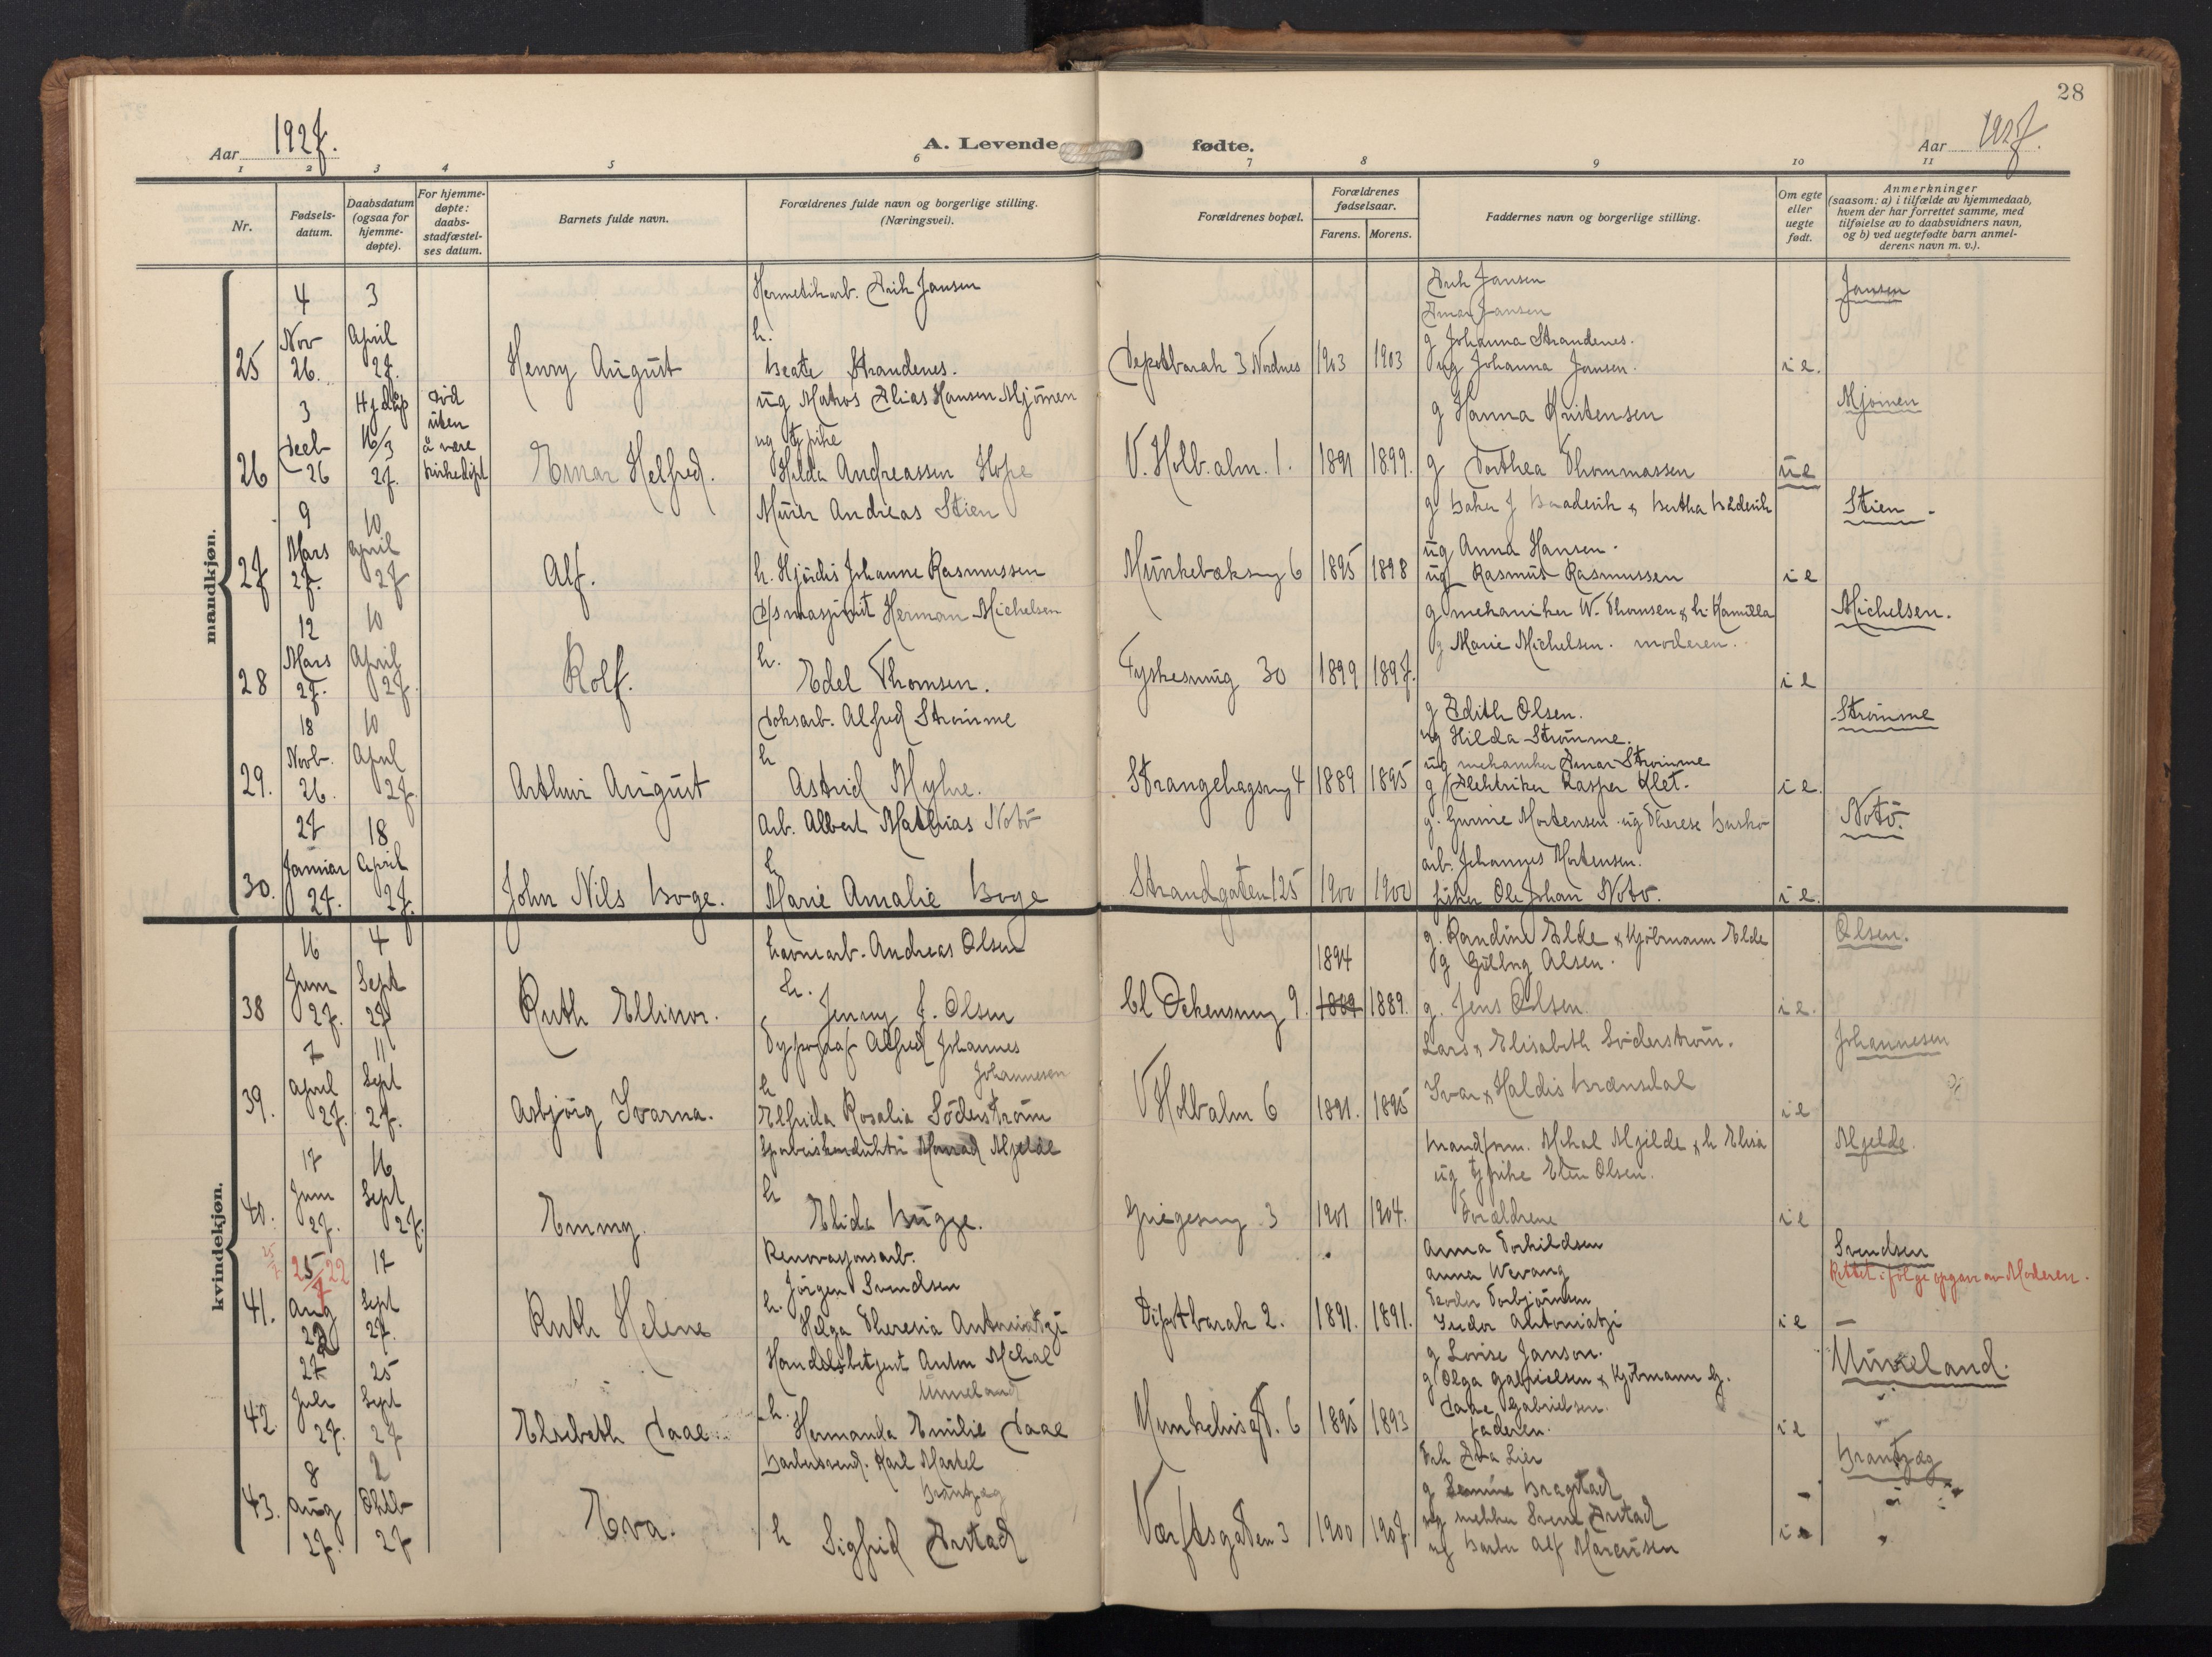 28
Aar 1927.
A. Levende fødte.
Aar 1927.
1 2 3 4 5 6 7 8 9 10 11
Nr.
Fødsels-
datum.
Daabsdatum
(ogsaa for
hjemme-
døpte).
For hjemme-
døpte:
daabs-
stadfæstel-
ses datum.
Barnets fulde navn.
Forældrenes fulde navn og borgerlige stilling.
(Næringsvei).
Forældrenes bopæl.
Forældrenes
fødselsaar.
Farens. Morens.
Faddernes navn og borgerlige stilling.
Om egte
eller
uegte
født.
Anmerkninger
(saasom: a) i tilfælde av hjemmedaab,
hvem der har forrettet samme, med
tilføielse av to daabsvidners navn,
og b) ved uegtefødte barn anmel-
derens navn m. v.).
mandkjøn.
25
4
Nov
26.
3
April
27.
Henry August
Hermetikarb. Erik Jansen
h.
Beate Strandenes.
Depotbarak 3 Nordnes
1903 1903
Erik Jansen
Einar Jansen
g Johanna Strandenes.
ug Johanna Jansen.
i e.
Jansen
26
3
Decb
26
Hjdøp
16/3
27.
død
uten
å være
kirkedøpt
Einar Helfred.
ug Matros Elias Hansen Mjömen
ug tj pike
Hilda Andreassen Hope
V. Holb. alm. 1.
1891 1899.
g Hanna Kristensen
g Dorthea Thommassen
ue
Mjömen
27
9
Mars
27.
10
April
27
Alf.
Murer Andreas Stien
h. Hjördis Johanne Rasmussen
Munkebæksmg 6
1895 1898
g baker J Baaderik & Bertha Baderik
ug Anna Hansen.
ug Rasmus Rasmussen
i e
Stien
28
12
Mars
27.
10
April
27.
Rolf.
D/s masjinist Herman Michelsen
h.
Edel Thomsen.
Tyskesmug 30
1899 1897.
g mekaniker W. Thomsen & h. Kamilla
g Marie Michelsen. moderen.
i e
Michelsen.
29.
18
Novb.
26.
10
April
27.
Arthur August
Doksarb. Alfred Strömme
h
Astrid Myhre.
Strangehagsmg 4
1889 1895
g Edith Olsen.
ug Hilda Strömme.
ug mekaniker Einar Strömme
g Elektriker Kasper Klet.
i e.
Strömme
30.
27
Januar
27.
18
April
27.
John Nils Boge.
Arb. Albert Mathias Notö
h
Marie Amalie Boge
Strandgaten 125
1900 1900
g. Gurine Mortensen. ug Therese Buskö
arb. Johannes Mortensen.
fisker Ole Johan Notö.
i e.
Notö.
kvindekjøn.
38
16
Juni
27.
4
Sept
27
Ruth Ellinor.
havnearb. Andreas Olsen
h.
Jenny J. Olsen
Cl Ockensmug 9.
1894
1889 1889.
g. Randine Elde & Kjöbmann Elde
g Gudlög Olsen.
g. Jens Olsen.
i e.
Olsen.
39.
7
April
27.
11
Sept
27.
Asbjörg Ivarna.
Typograf Alfred Johannes
Johannesen
h
Elfrida Rosalia Söderström
V Holbalm 6
1891. 1895
Lars & Elisabeth Söderström.
Ivar & Haldis Brænsdal
i e
Johannesen
40.
17
Juni
27.
16
Sept
27.
Emmy.
Sporveiskonduktör Monrad Mjelde
h
Elida Bugge.
Griegesmug 3
1901 1904.
brandform. Mikal Mjelde & h Elisa
ug tj pike Elen Olsen.
Forældrene
i e
Mjelde.
41.
25/7
25/7 22
Aug
17
Sept
27.
Ruth Helene
Renovasjonsarb.
Jörgen Svendsen
h.
Helga Theresia Antoniatzi
Depotbarak 2.
1891. 1891.
Anna Torkildsen
Anna Wevang
Teodor Torbjörnsen
Teodor Antoniatzi
i e
Svendsen
Rettet i følge opgave av Moderen.
42.
27
Juli
27.
25
Sept
27
Elsebeth Daae
Handelsbetjent Anton Mikal
Unneland
h.
Hermanda Emilie Daae
Munkehusgt. 6
1895 1893
g Lovise Janson.
g Olga Gabrielsen & Kjöbmann G.
Daae Gabrielsen.
faderen.
i e
Unneland.
43.
8
Aug
27.
2
Oktb
27
Eva.
Barbersvend. Karl Markel
Brantzæg
h Sigfrid Arstad
Værftsgaten 3
1900 1907.
frk Eva Lier
g Semine Bragstad
ug Sverre Arstad
ug barber Alf Marcusen
i e
Brantzæg